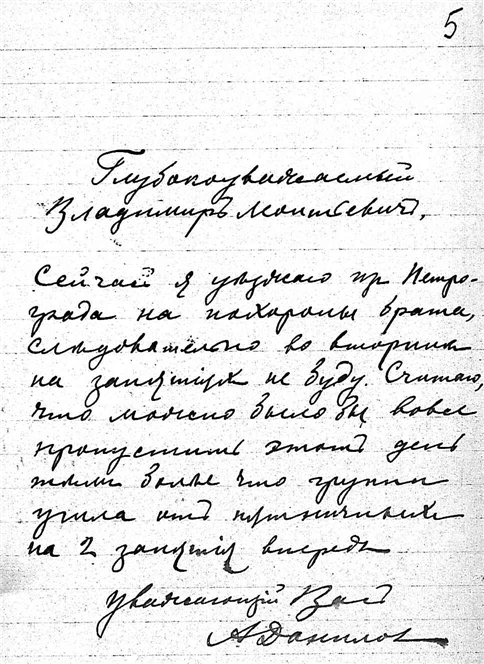 5
Глубокоуважаемый
Владимиръ Матвѣевичъ,
Сейчас я уѣзжаю из Петро-
града на похороны брата,
слѣдовательно во вторникъ
на занятiяхъ не буду. Считаю,
что можно было бы вовсе
пропустить этотъ день
тѣмъ болѣе что группа
ушла отъ
на 2 занятiя впередъ
Уважающiй Васъ
А Данилов